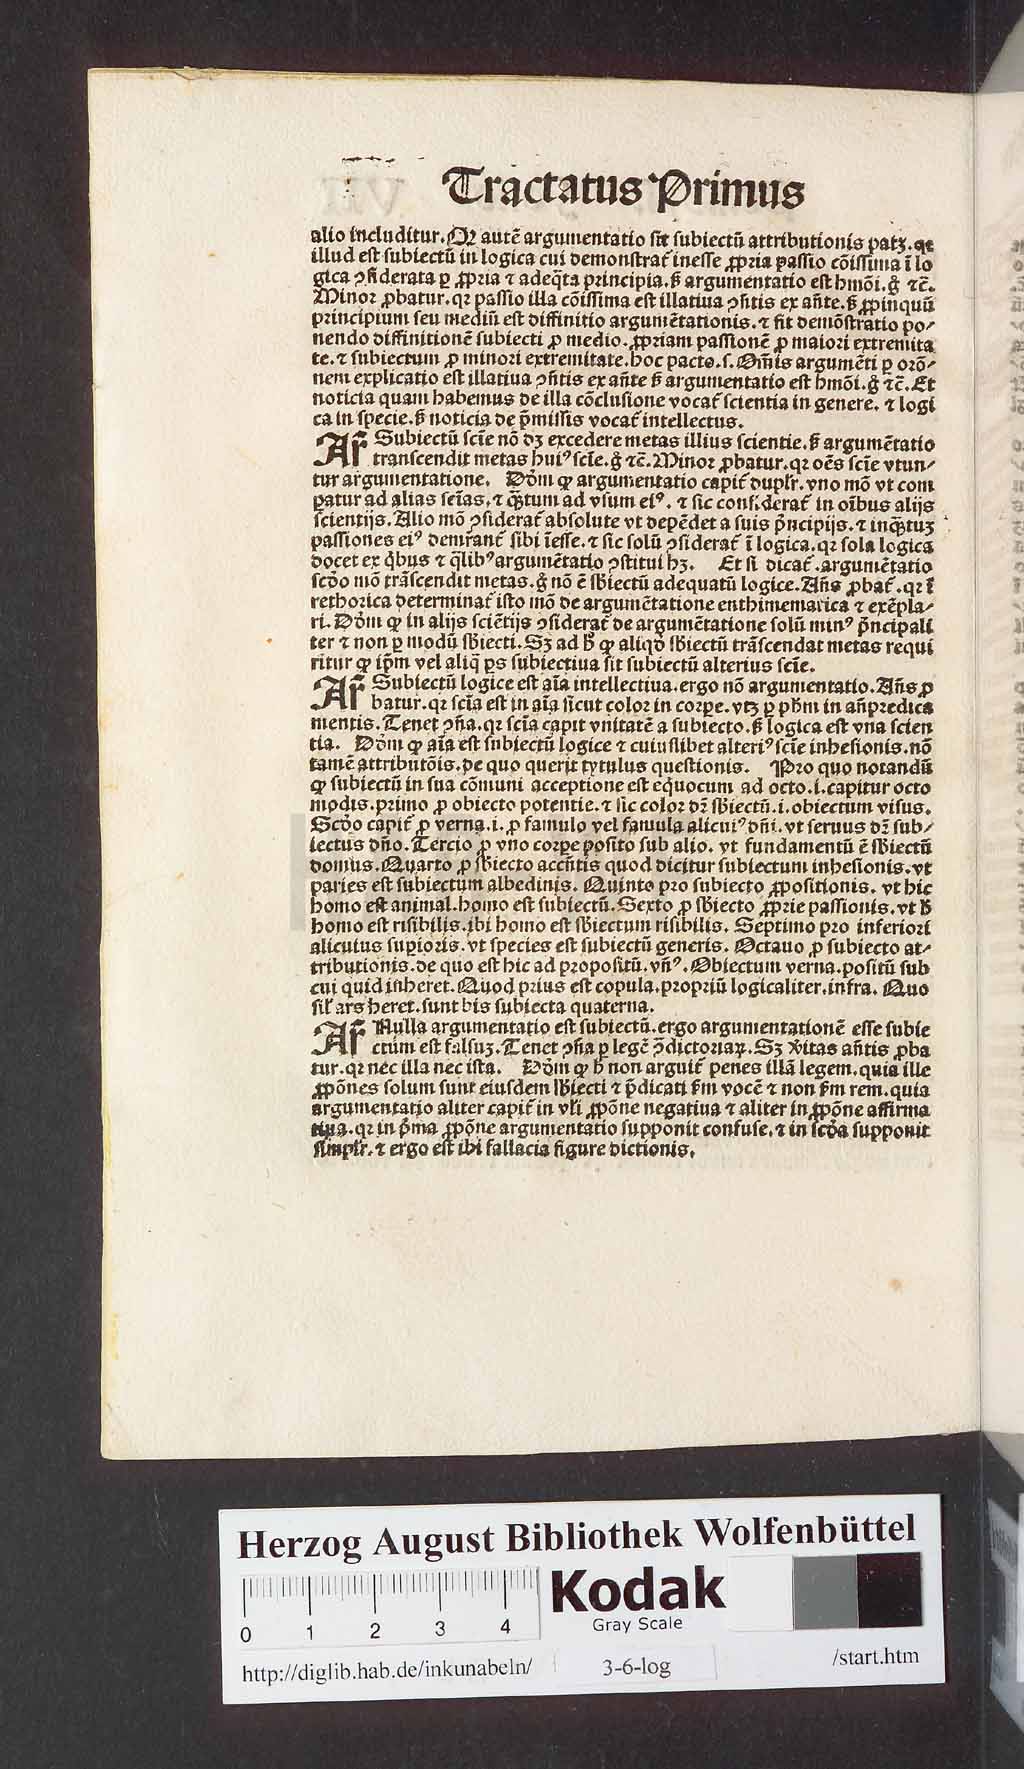 Tractatus Primus
alio includitur. Ꝙ autē argumentatio sit subiectū attributionis patꝫ. qꝛ
illud est subiectū in logica cui demonstrat᷑ inesse ꝓpria passio cōissima ī lo
gica ꝯsiderata ꝑ ꝓpria ⁊ adeq̄ta principia. sꝫ argumentatio est hmōi. g̊ ⁊c̄.
Minor ꝓbatur. qꝛ passio illa cōissima est illatiua ꝯñtis ex añte. sꝫ ꝓpinquū
principium seu mediū est diffinitio argumētationis. ⁊ fit demōstratio po⸗
nendo diffinitionē subiecti ꝓ medio. ꝓpriam passionē ꝓ maiori extremita
te. ⁊ subiectum ꝓ minori extremitate. hoc pacto. s. Om̄is argumēti ꝑ orō⸗
nem explicatio est illatiua ꝯñtis ex añte sꝫ argumentatio est hmōi. g̊ ⁊c̄. Et
noticia quam habemus de illa cōclusione vocat᷑ scientia in genere. ⁊ logi
ca in specie. sꝫ noticia de p̄missis vocat᷑ intellectus.
Ar̄ Subiectū scīe nō dꝫ excedere metas illius scientie. sꝫ argumētatio
transcendit metas huiꝰ scīe. g̊ ⁊c̄. Minor ꝓbatur. qꝛ oēs scīe vtun⸗
tur argumentatione. Dōm ꝙ argumentatio capit᷑ duplr̄. vno mō vt com
ꝑatur ad alias scīas. ⁊ q̄ꝫtum ad vsum eiꝰ. ⁊ sic considerat᷑ in oībus alijs
scientijs. Alio mō ꝯsiderat᷑ absolute vt depēdet a suis p̄ncipijs. ⁊ inq̄ꝫtuꝫ
passiones eiꝰ demr̄ant᷑ sibi īesse. ⁊ sic solū ꝯsiderat᷑ ī logica. qꝛ sola logica
docet ex q̇bus ⁊ q̄libꝰ argumētatio ꝯstitui hꝫ. Et si dicat᷑. argumētatio
scd̄o mō trāscendit metas. g̊ nō ē sbiectū adequatū logice. Añs ꝓbat᷑. qꝛ ī
rethorica determinat᷑ isto mō de argumētatione enthimematica ⁊ exēpla⸗
ri. Dōm ꝙ in alijs sciētijs ꝯsiderat᷑ de argumētatione solū minꝰ p̄ncipali
ter ⁊ non ꝑ modū sbiecti. Sꝫ ad h̄ ꝙ aliqd̄ sbiectū trāscendat metas requi
ritur ꝙ ip̄m vel aliq̄ ꝑs subiectiua sit subiectū alterius scīe.
Ar̄ Subiectū logice est aīa intellectiua. ergo nō argumentatio. Añs ꝓ
batur. qꝛ scīa est in aīa sicut color in corꝑe. vtꝫ ꝑ ph̄m in añpredica
mentis. Tenet ꝯña. qꝛ scīa capit vnitatē a subiecto. sꝫ logica est vna scien
tia. Dōm ꝙ aīa est subiectū logice ⁊ cuiuslibet alteriꝰ scīe inhesionis. nō
tamē attributōis. de quo querit tytulus questionis. Pro quo notandū
ꝙ subiectū in sua cōmuni acceptione est equocum ad octo. i. capitur octo
modis. primo ꝓ obiecto potentie. ⁊ sic color dꝛ̄ sbiectū. i. obiectum visus.
Scd̄o capit᷑ ꝓ verna. i. ꝓ famulo vel famula alicuiꝰ dñi. vt seruus dꝛ̄ sub⸗
iectus dño. Tercio ꝓ vno corꝑe posito sub alio. vt fundamentū ē sbiectū
domus. Quarto ꝓ sbiecto accñtis quod dicitur subiectum inhesionis. vt
paries est subiectum albedinis. Quinto pro subiecto ꝓpositionis. vt hic
homo est animal. homo est subiectū. Sexto ꝓ sbiecto ꝓprie passionis. vt h̄
homo est risibilis. ibi homo est sbiectum risibilis. Septimo pro inferiori
alicuius suꝑioris. vt species est subiectū generis. Octauo ꝓ subiecto at⸗
tributionis. de quo est hic ad propositū. vñꝰ. Obiectum verna. positū sub
cui quid inheret. Quod prius est copula. propriū logicaliter. infra. Quo
sil̄ ars heret. sunt bis subiecta quaterna.
Ar̄ Nulla argumentatio est subiectū. ergo argumentationē esse subie
ctum est falsuꝫ. Tenet ꝯña ꝑ legē ꝯ̄dictoriaꝝ. Sꝫ v̄itas añtis ꝓba
tur. qꝛ nec illa nec ista. Dōm ꝙ h̄ non arguit᷑ penes illā legem. quia ille
ꝓpōnes solum sunt eiusdem sbiecti ⁊ p̄dicati ẜm vocē ⁊ non ẜm rem. quia
argumentatio aliter capit᷑ in vl̄i ꝓpōne negatiua ⁊ aliter in ꝓpōne affirma
tiua. qꝛ in p̄ma ꝓpōne argumentatio supponit confuse. ⁊ in scd̄a supponit
simplr̄. ⁊ ergo est ibi fallacia figure dictionis.
Herzog August Bibliothek Wolfenbüttel
0 1 2 3 4
Kodak
Gray Scale
http://diglib.hab.de/inkunabeln/ 3-6-log /start.htm